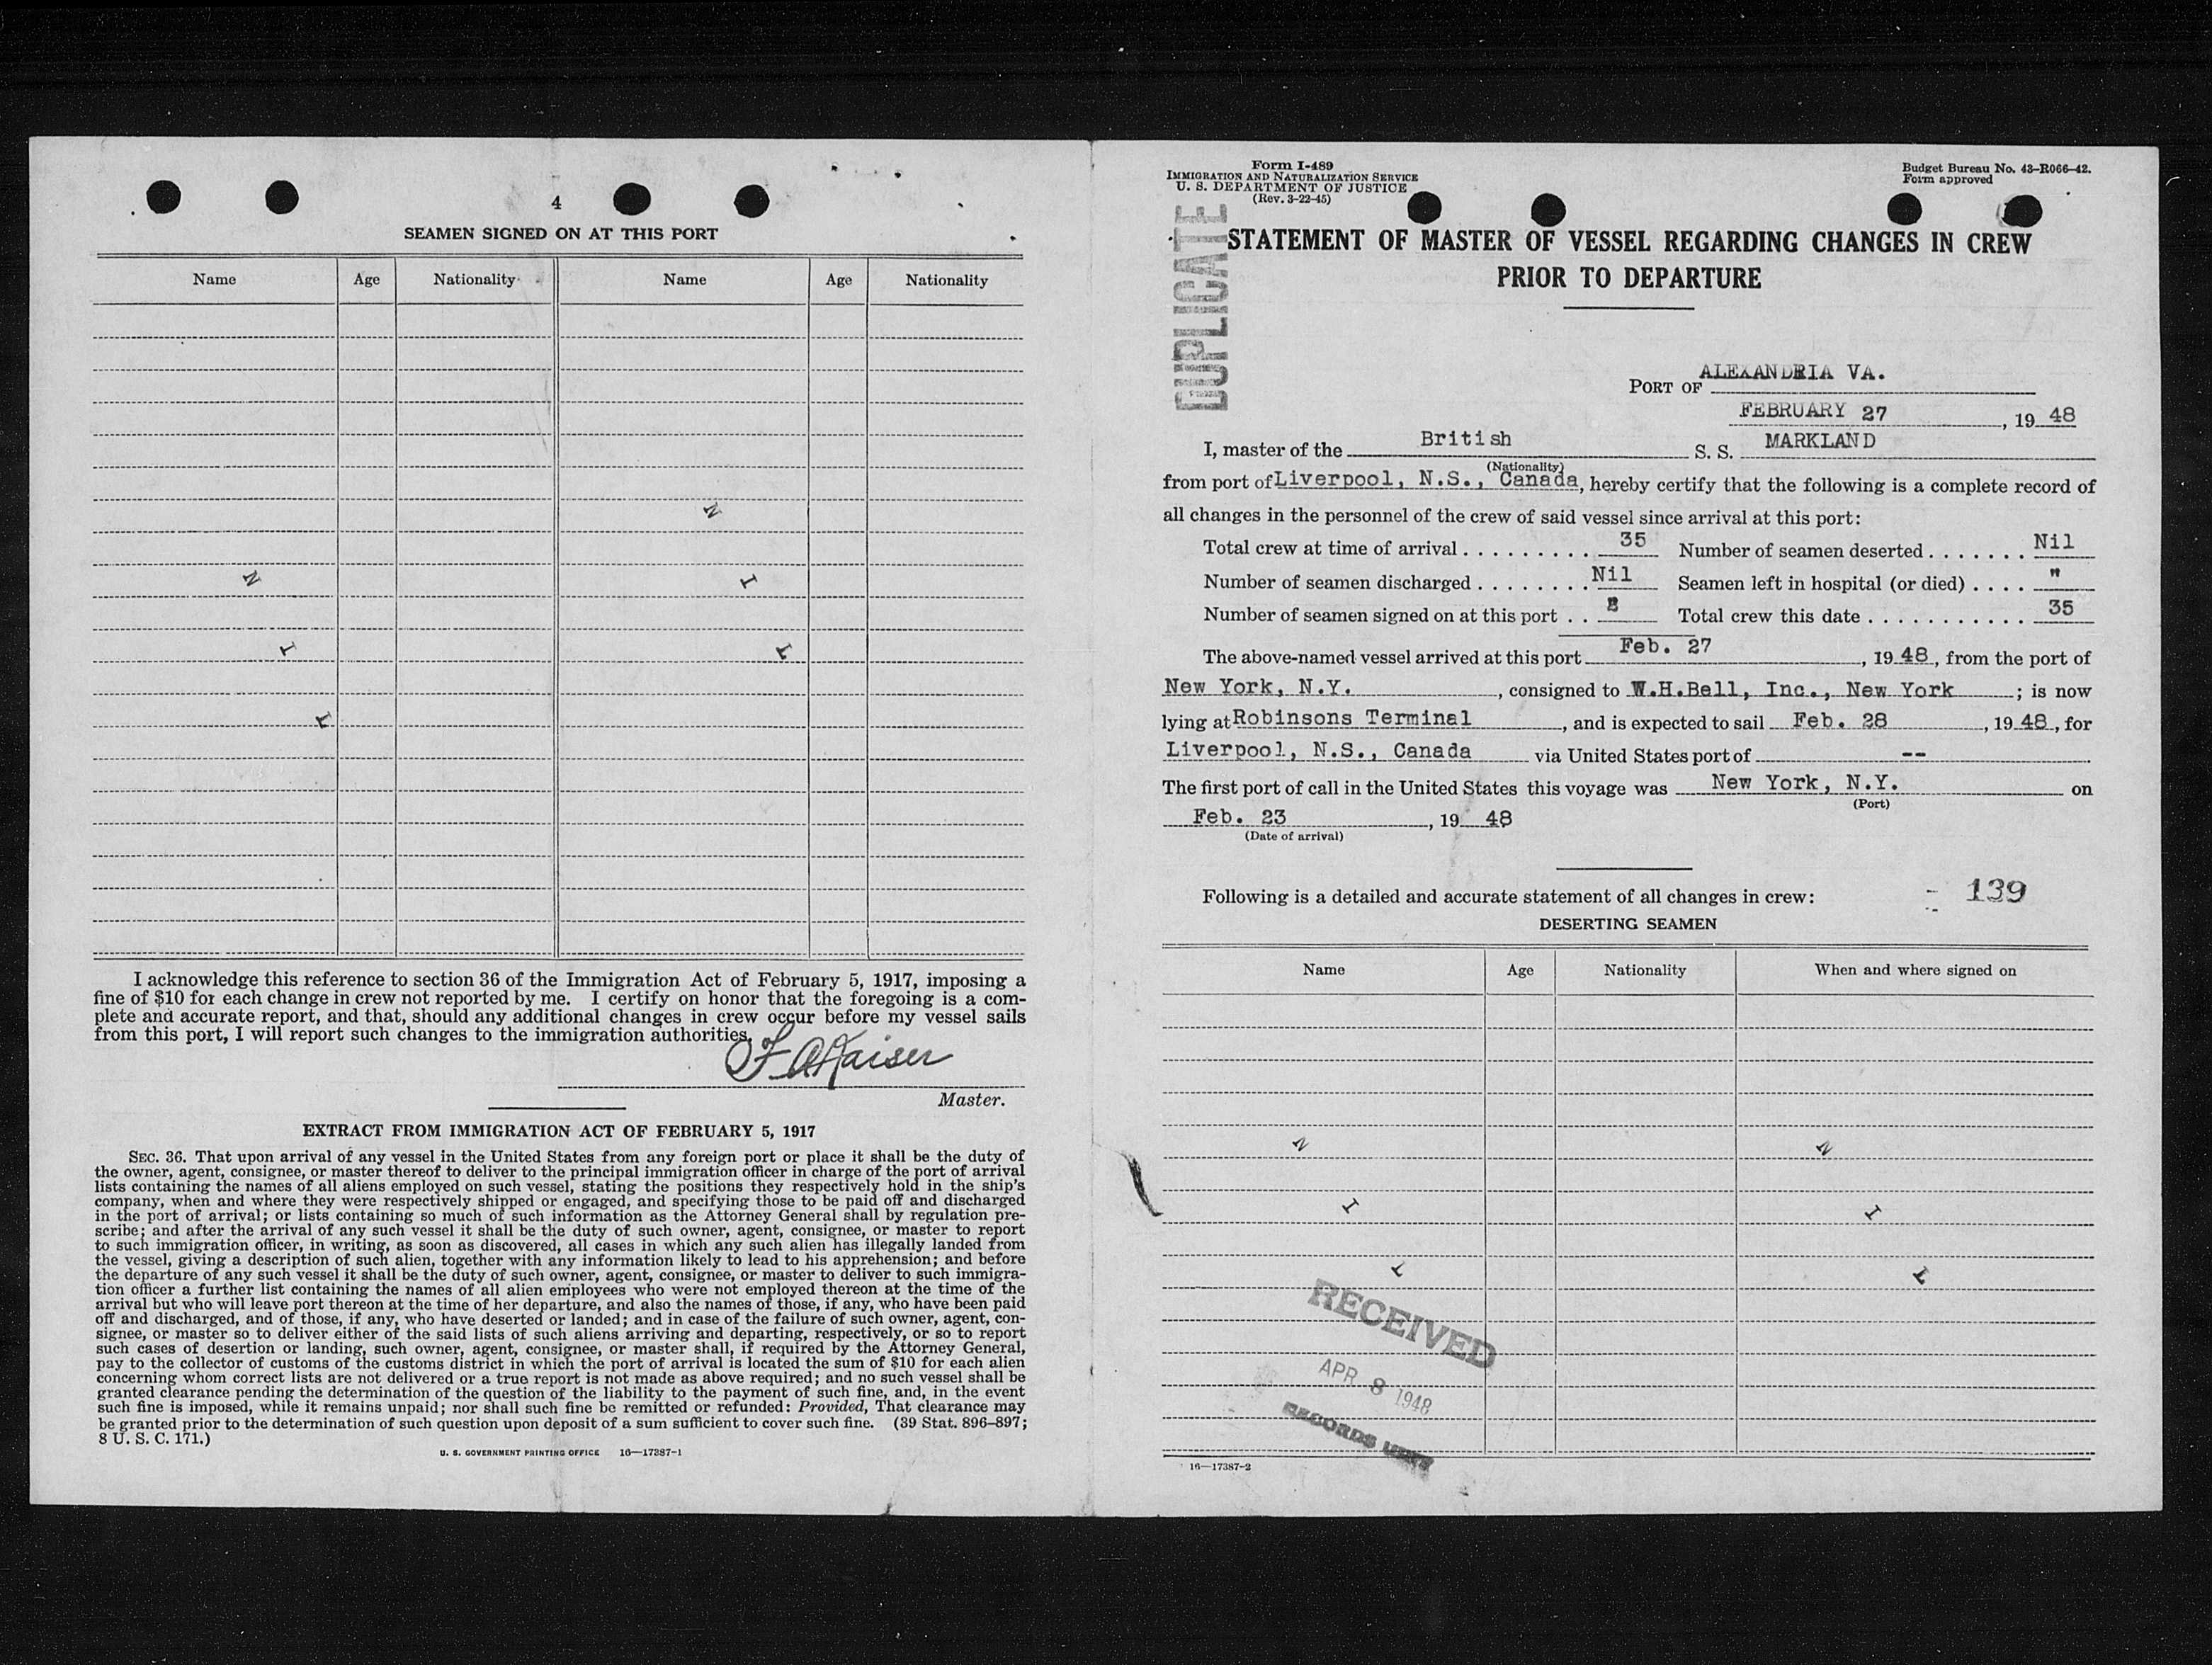 4
SEAMEN SIGNED ON AT THIS PORT
Name Age Nationality Name Age Nationality
N
N I
I L
L
I acknowledge this reference to section 36 of the Immigration Act of February 5, 1917, imposing a
fine of $10 for each change in crew not reported by me. I certify on honor that the foregoing is a com-
plete and accurate report, and that, should any additional changes in crew occur before my vessel sails
from this port, I will report such changes to the immigration authorities.
F A Kaiser
Master.
EXTRACT FROM IMMIGRATION ACT OF FEBRUARY 5, 1917
SEC. 36. That upon arrival of any vessel in the United States from any foreign port or place it shall be the duty of
the owner, agent, consignee, or master thereof to deliver to the principal immigration officer in charge of the port of arrival
lists containing the names of all aliens employed on such vessel, stating the positions they respectively hold in the ship's
company, when and where they were respectively shipped or engaged, and specifying those to be paid off and discharged
in the port of arrival; or lists containing so much of such information as the Attorney General shall by regulation pre-
scribe; and after the arrival of any such vessel it shall be the duty of such owner, agent, consignee, or master to report
to such immigration officer, in writing, as soon as discovered, all cases in which any such alien has illegally landed from
the vessel, giving a description of such alien, together with any information likely to lead to his apprehension; and before
the departure of any such vessel it shall be the duty of such owner, agent, consignee, or master to deliver to such immigra-
tion officer a further list containing the names of all alien employees who were not employed thereon at the time of the
arrival but who will leave port thereon at the time of her departure, and also the names of those, if any, who have been paid
off and discharged, and of those, if any, who have deserted or landed; and in case of the failure of such owner, agent, con-
signee, or master so to deliver either of the said lists of such aliens arriving and departing, respectively, or so to report
such cases of desertion or landing, such owner, agent, consignee, or master shall, if required by the Attorney General,
pay to the collector of customs of the customs district in which the port of arrival is located the sum of $10 for each alien
concerning whom correct lists are not delivered or a true report is not made as above required; and no such vessel shall be
granted clearance pending the determination of the question of the liability to the payment of such fine, and, in the event
such fine is imposed, while it remains unpaid; nor shall such fine be remitted or refunded: Provided, That clearance may
be granted prior to the determination of such question upon deposit of a sum sufficient to cover such fine. (39 Stat. 896–897;
8 U. S. C. 171.)
U. S. GOVERNMENT PRINTING OFFICE 16—17387-1
Form I-489
IMMIGRATION AND NATURALIZATION SERVICE
U. S. DEPARTMENT OF JUSTICE
(Rev. 3-22-45)
Budget Bureau No. 43–R066–42.
Form approved
DUPLICATE
STATEMENT OF MASTER OF VESSEL REGARDING CHANGES IN CREW
PRIOR TO DEPARTURE
PORT OF ALEXANDRIA VA.
FEBRUARY 27, 19 48
I, master of the British S. S. MARKLAND
(Nationality)
from port of Liverpool, N.S., Canada, hereby certify that the following is a complete record of
all changes in the personnel of the crew of said vessel since arrival at this port:
Total crew at time of arrival . . . . . . . . . 35 Number of seamen deserted . . . . . . . Nil
Number of seamen discharged . . . . . . . . Nil Seamen left in hospital (or died) . . . . "
Number of seamen signed on at this port . . Total crew this date . . . . . . . . . . . . 35
The above-named vessel arrived at this port Feb. 27, 19 48, from the port of
New York, N.Y., consigned to W.H.Bell, Inc., New York; is now
lying at Robinsons Terminal, and is expected to sail Feb. 28, 19 48, for
Liverpool, N.S., Canada via United States port of --.
The first port of call in the United States this voyage was New York, N.Y. on
(Port)
Feb. 23, 19 48
(Date of arrival)
Following is a detailed and accurate statement of all changes in crew: 139
DESERTING SEAMEN
Name Age Nationality When and where signed on
N N
I I
L L
RECEIVED
APR 8 1948
RECORDS UNIT
16—17387-2